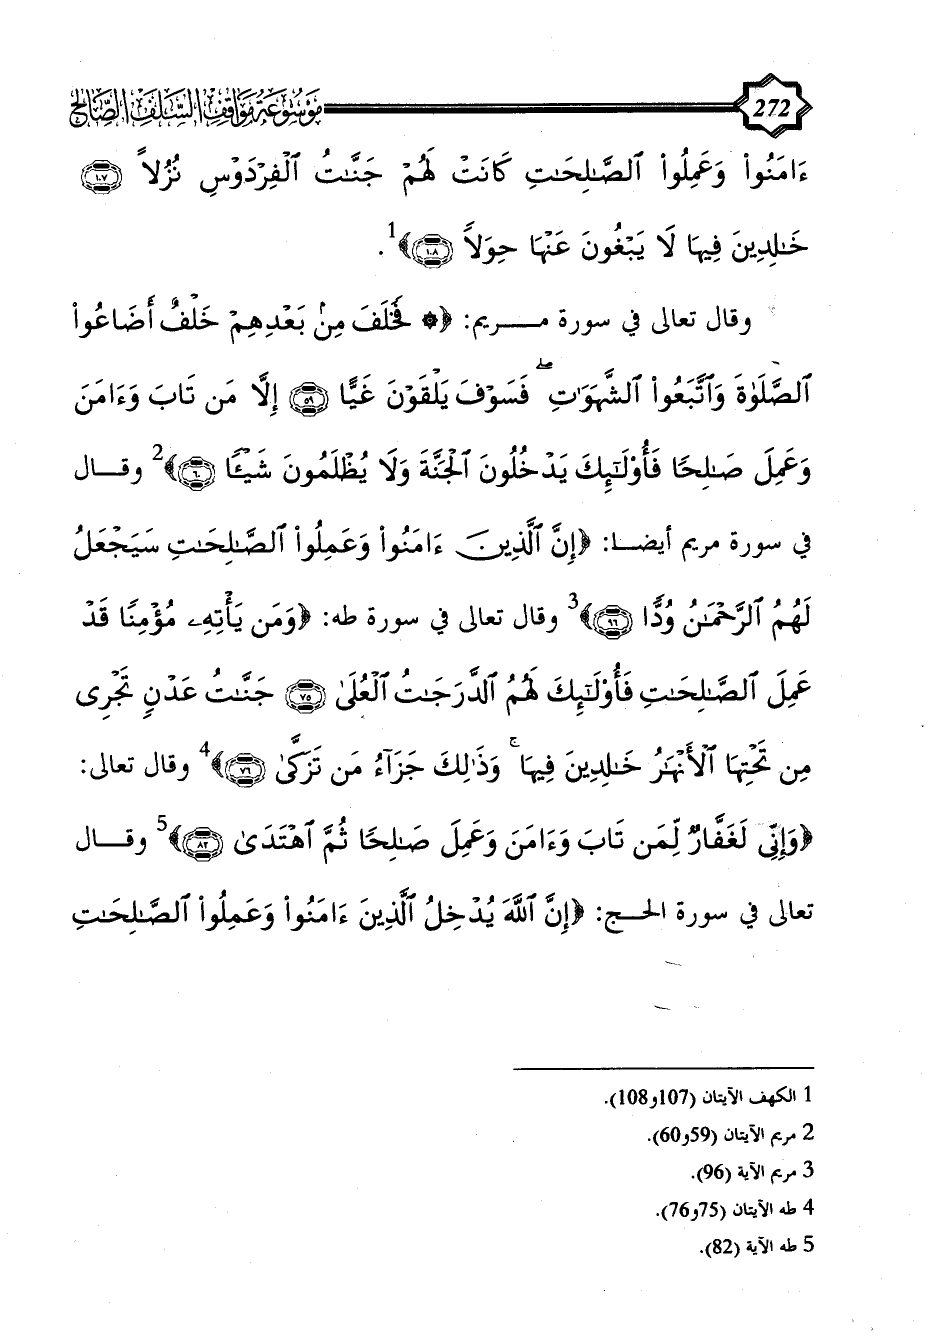 272 موسوعة مواقف السلف الصالح
ءَامَنُواْ وَعَمِلُواْ ٱلصَّٰلِحَٰتِ كَانَتْ لَهُمْ جَنَّٰتُ ٱلْفِرْدَوْسِ نُزُلاً ١٠٧
خَٰلِدِينَ فِيهَا لَا يَبْغُونَ عَنْهَا حِوَلاً ١٠٨﴾1.
وقال تعالى في سورة مريم: ﴿۞ فَخَلَفَ مِنۢ بَعْدِهِمْ خَلْفٌ أَضَاعُواْ
ٱلصَّلَوٰةَ وَٱتَّبَعُواْ ٱلشَّهَوَٰتِ ۖ فَسَوْفَ يَلْقَوْنَ غَيًّا ٥٩ إِلَّا مَن تَابَ وَءَامَنَ
وَعَمِلَ صَٰلِحًا فَأُوْلَٰٓئِكَ يَدْخُلُونَ ٱلْجَنَّةَ وَلَا يُظْلَمُونَ شَيْـًٔا ٦٠﴾2 وقال
في سورة مريم أيضا: ﴿إِنَّ ٱلَّذِينَ ءَامَنُواْ وَعَمِلُواْ ٱلصَّٰلِحَٰتِ سَيَجْعَلُ
لَهُمُ ٱلرَّحْمَٰنُ وُدًّا ٩٦﴾3 وقال تعالى في سورة طه: ﴿وَمَن يَأْتِهِۦ مُؤْمِنًا قَدْ
عَمِلَ ٱلصَّٰلِحَٰتِ فَأُوْلَٰٓئِكَ لَهُمُ ٱلدَّرَجَٰتُ ٱلْعُلَىٰ ٧٥ جَنَّٰتُ عَدْنٍ تَجْرِى
مِن تَحْتِهَا ٱلْأَنْهَٰرُ خَٰلِدِينَ فِيهَا ۚ وَذَٰلِكَ جَزَآءُ مَن تَزَكَّىٰ ٧٦﴾4 وقال تعالى:
﴿وَإِنِّى لَغَفَّارٌ لِّمَن تَابَ وَءَامَنَ وَعَمِلَ صَٰلِحًا ثُمَّ ٱهْتَدَىٰ ٨٢﴾5 وقال
تعالى في سورة الحج: ﴿إِنَّ ٱللَّهَ يُدْخِلُ ٱلَّذِينَ ءَامَنُواْ وَعَمِلُواْ ٱلصَّٰلِحَٰتِ
1 الكهف الآيتان (107و108).
2 مريم الآيتان (59و60).
3 مريم الآية (96).
4 طه الآيتان (75و76).
5 طه الآية (82).